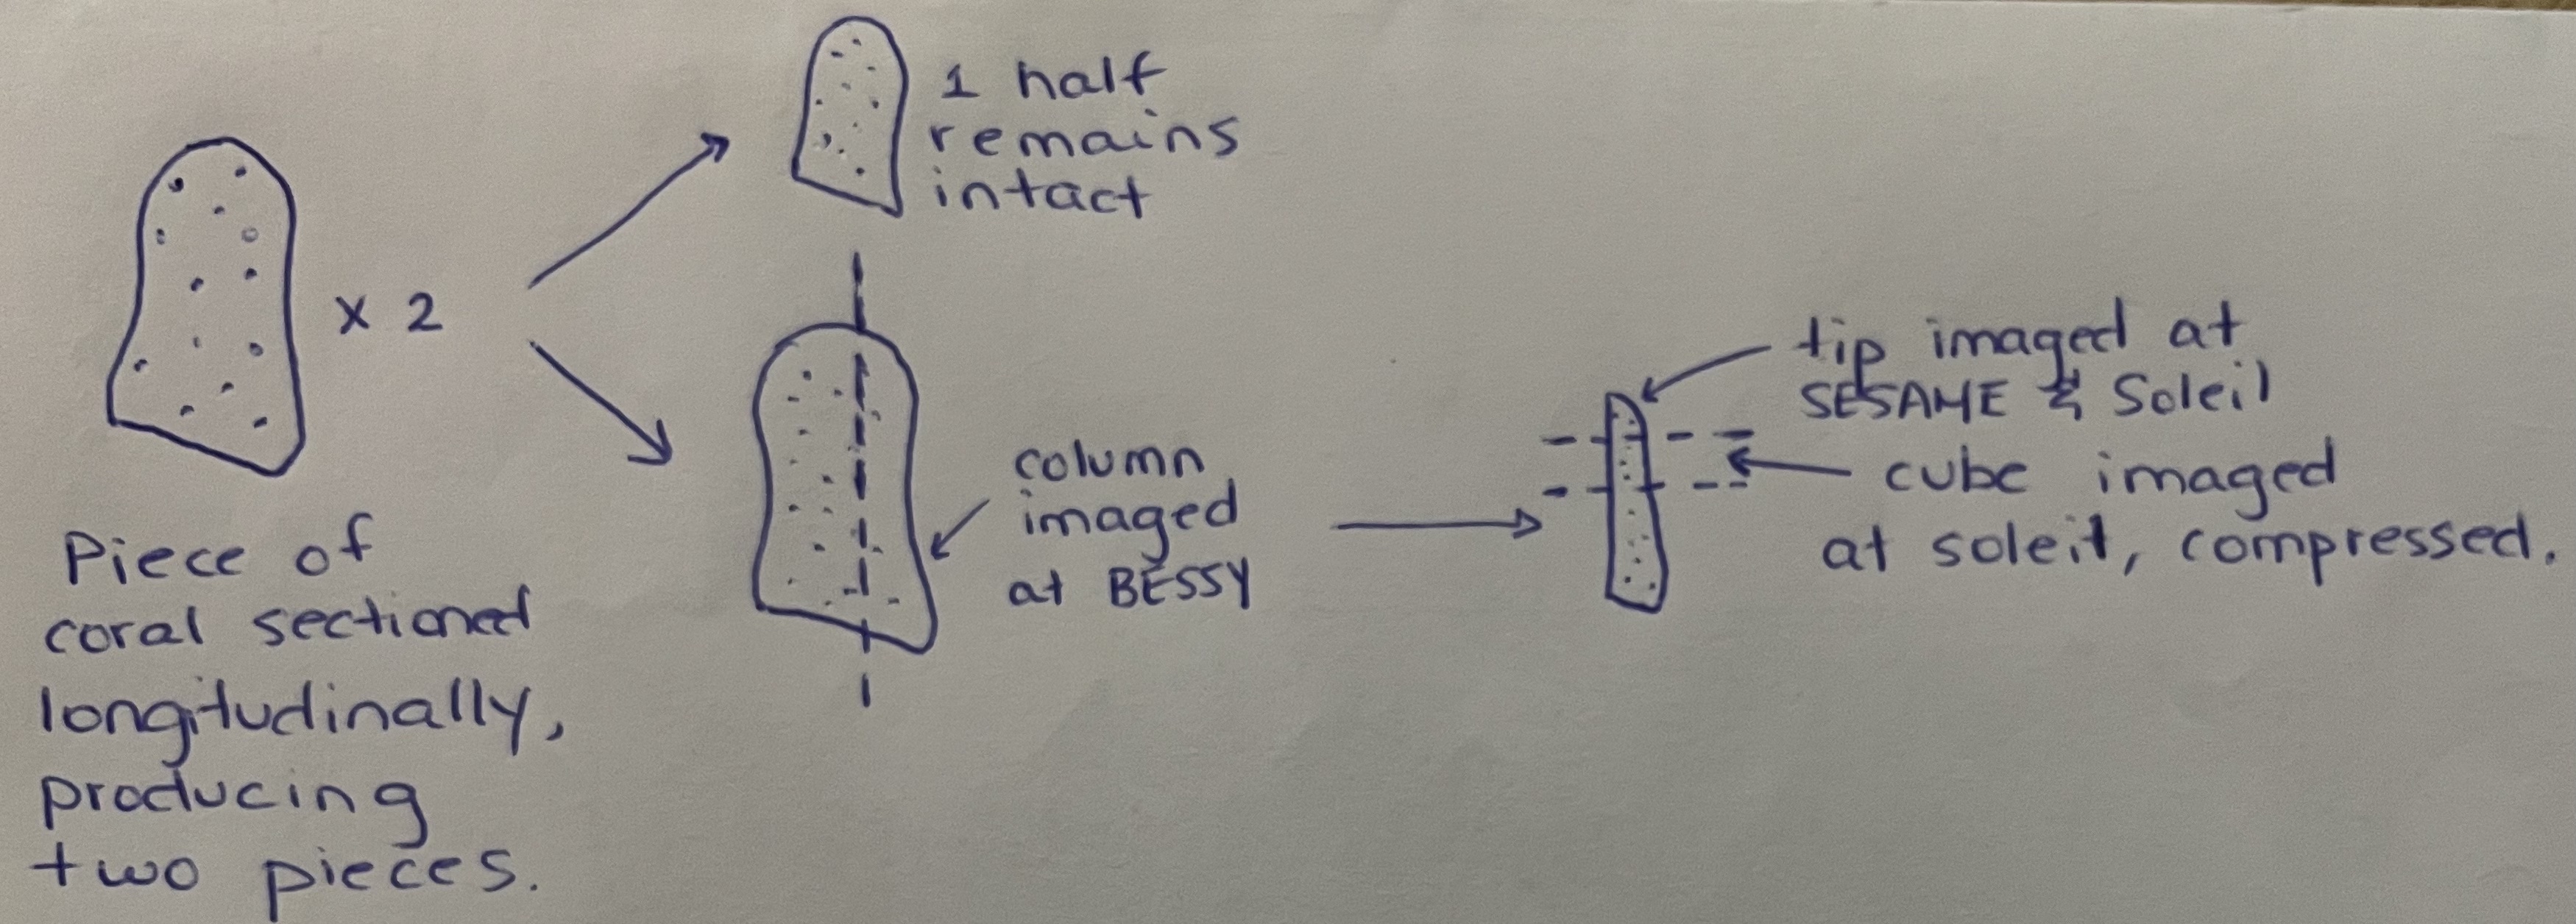 x 2
Piece of
coral sectioned
longitudinally,
producing
two pieces.
1 half
remains
intact
column
imaged
at BESSY
tip imaged at
SESAME & Soleil
cube imaged
at soleil, compressed.